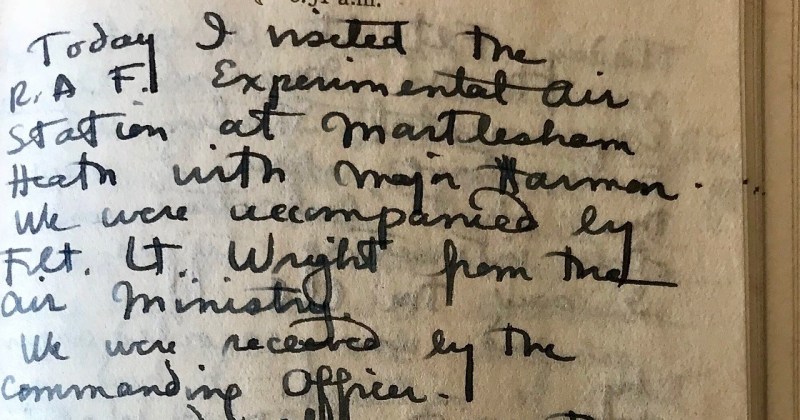 Today I visited the
R.A.F. Experimental air
station at Martlesham
Heath with Major Harmon.
We were accompanied by
Flt. Lt. Wright from the
air Ministry.
We were received by the
commanding Officer.